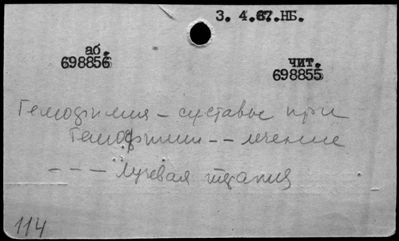 3. 4.67.НБ.
аб.
698856
чит.
698855
Гемофилия – суставы при
Гемофилии -- лечение
--- Лучевая терапия
114